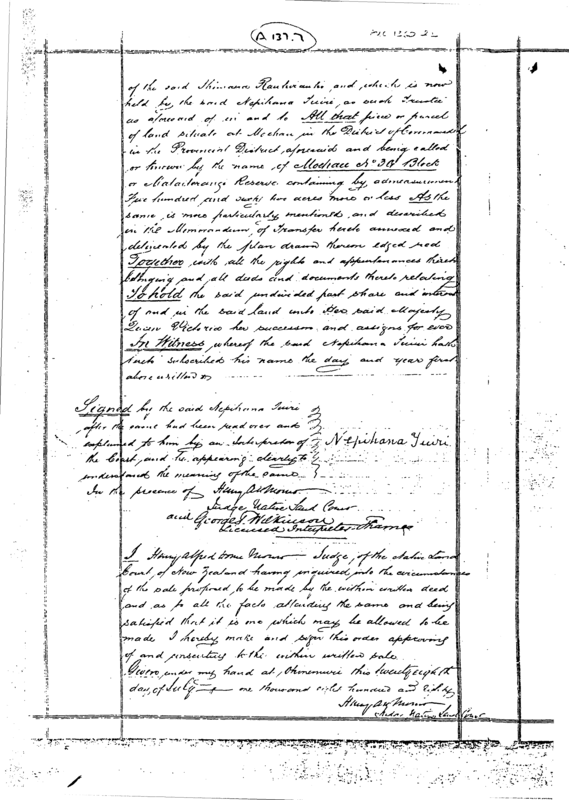 A 137.7
of the said Ihimaera and, which is now
held by the said Nepihana Tuiri, as such Trustee
as aforesaid of in and to All that piece or parcel
of land situate at Moehau in the District of Coromandel
in the Provincial District, aforesaid and being called
or known by the name, of Moehau No 3G Block
or Matactaranga Reserve containing by admeasurement
Five hundred and two acres more or less As the
same, is more particularly mentioned and described
in the Memorandum, of Transfer hereto annexed and
delineated by the plan drawn thereon edged red
Together with all the rights and appurtenances thereto
belonging and all deeds and documents thereto relating
To hold the said undivided part share and interest
of and in the said land unto Her said Majesty
Queen Victoria her successors and assigns for ever
In Witness, whereof the said Nepihana Tuiri hath
hereto subscribed his name the day and year first
above written
Signed by the said Nepihana Tuiri
after the same had been read over and
explained to him by an Interpreter of
the Court, and he appearing clearly to
understand the meaning of the same
In the presence of
Nepihana Tuiri
Henry A H Monro
Judge Native Land Court
and George T. Wilkinson
Licensed Interpreter Thames
I Henry Alfred Home Monro Judge, of the Native Land
Court, of New Zealand having inquired into the circumstances
of the sale proposed, to be made by the within written deed
and as to all the facts attending the same and being
satisfied that it is one which may be allowed to be
made I hereby make and sign this order approving
of and consenting to the within written sale
Given under my hand at Ohinemuri this twenty eighth
day, of July one thousand eight hundred and
Henry A H Monro
Judge Native Land Court